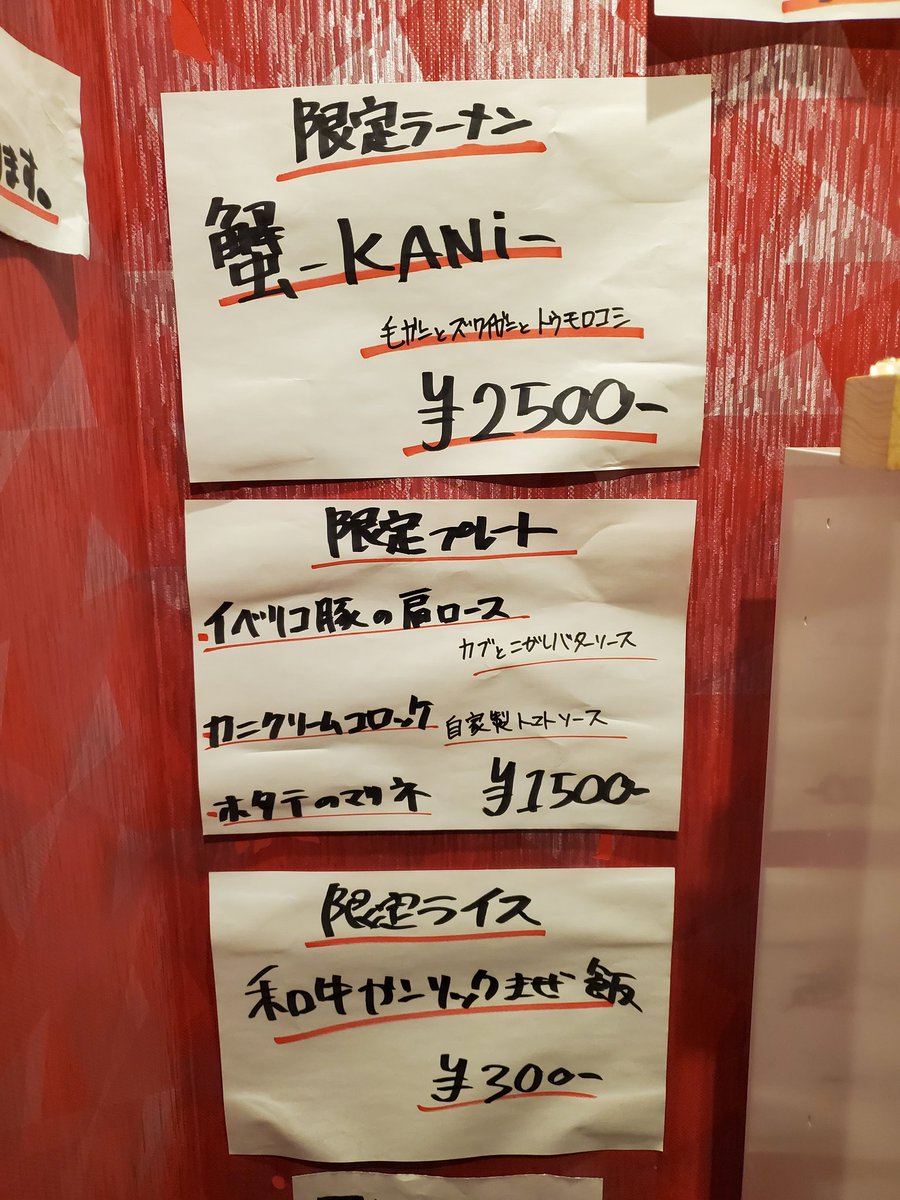 ります。
限定ラーメン
蟹-KANi-
毛ガニとズワイガニとトウモロコシ
¥2500-
限定プレート
・イベリコ豚の肩ロース
カブとこがしバターソース
・カニクリームコロッケ 自家製トマトソース
・ホタテのマリネ ¥1500-
限定ライス
和牛ガーリックまぜ飯
¥300-